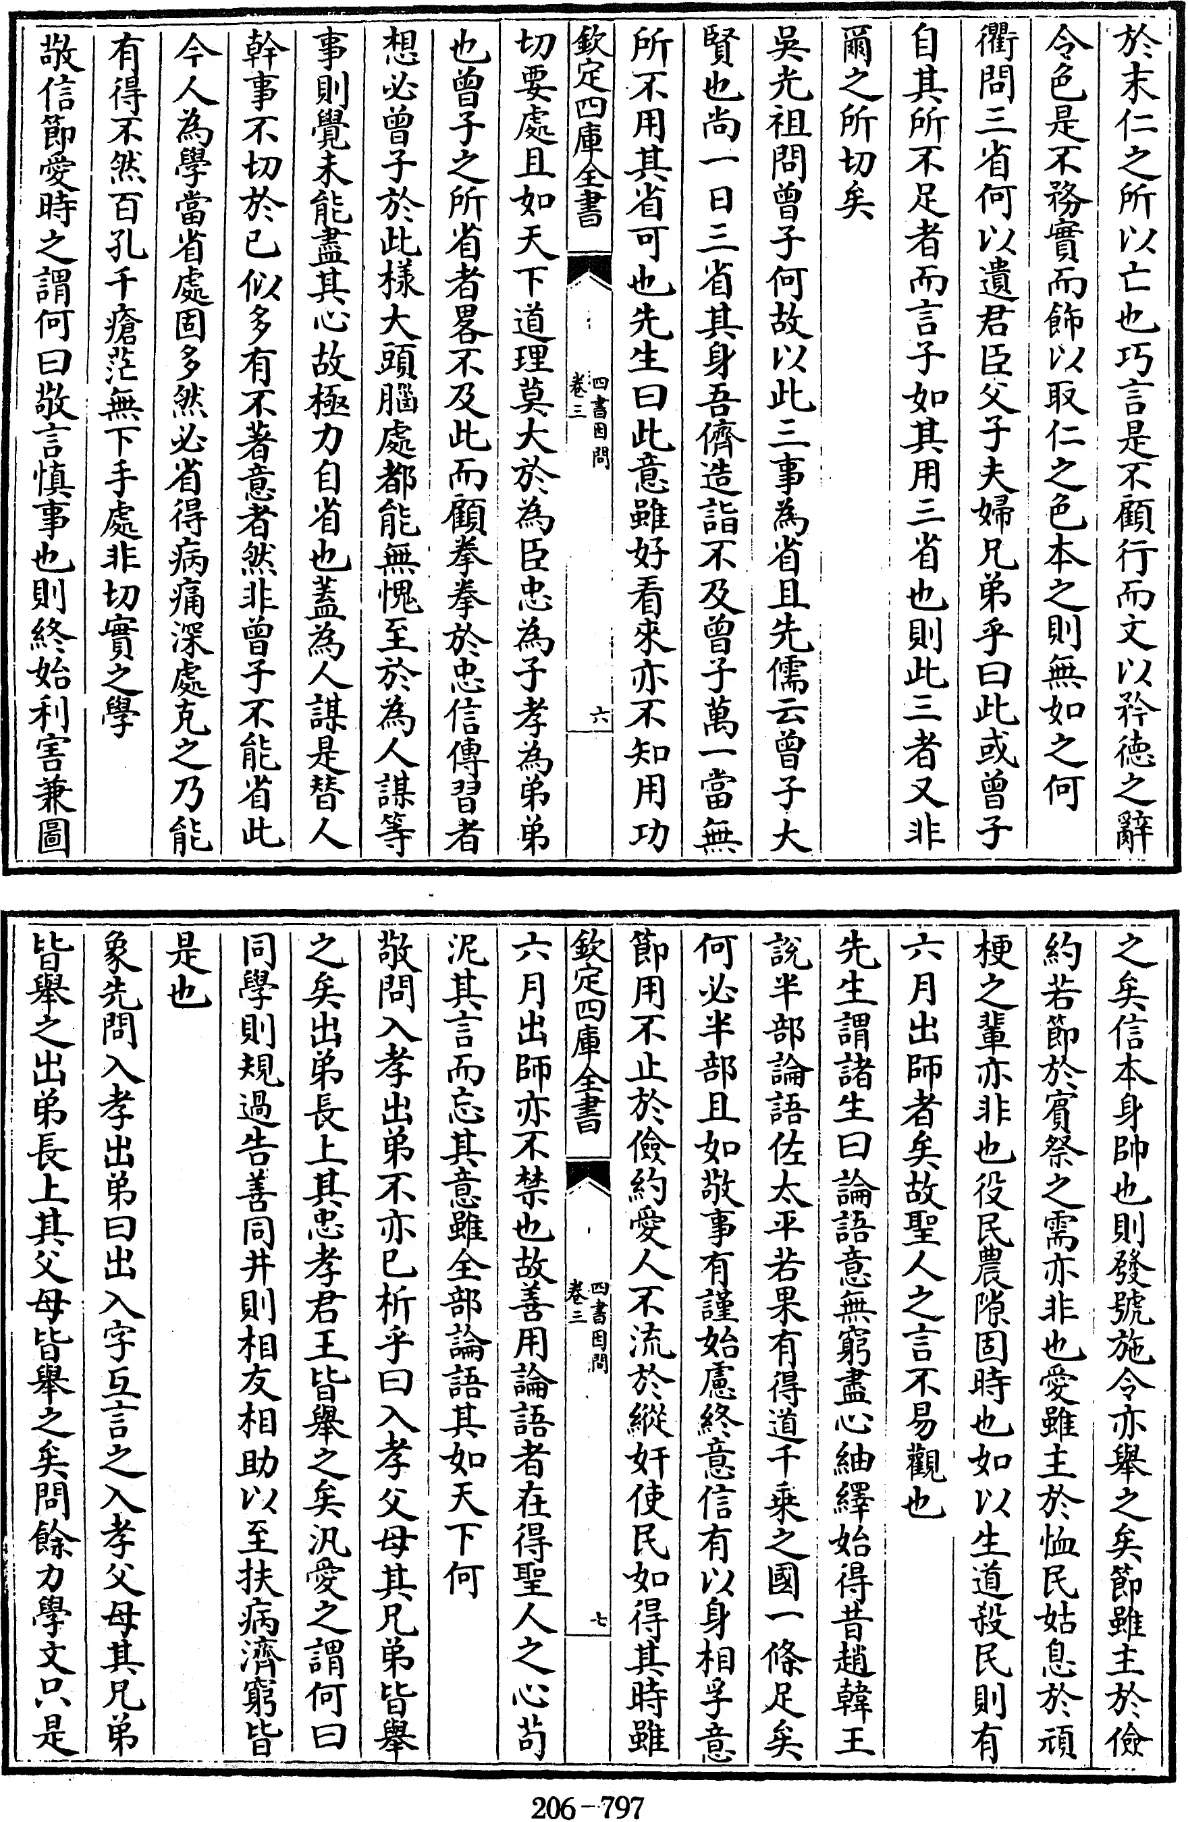 於末仁之所以亡也巧言是不顧行而文以矜德之辭
令色是不務實而飾以取仁之色本之則無如之何
衢問三省何以遺君臣父子夫婦兄弟乎曰此或曾子
自其所不足者而言子如其用三省也則此三者又非
爾之所切矣
吳光祖問曾子何故以此三事為省且先儒云曾子大
賢也尚一日三省其身吾儕造詣不及曾子萬一當無
所不用其省可也先生曰此意雖好看來亦不知用功
欽定四庫全書
四書因問
卷三
六
切要處且如天下道理莫大於為臣忠為子孝為弟弟
也曾子之所省者畧不及此而顧拳拳於忠信傳習者
想必曾子於此樣大頭腦處都能無愧至於為人謀等
事則覺未能盡其心故極力自省也蓋為人謀是替人
幹事不切於己似多有不著意者然非曾子不能省此
今人為學當省處固多然必省得病痛深處克之乃能
有得不然百孔千瘡茫無下手處非切實之學
敬信節愛時之謂何曰敬言慎事也則終始利害兼圖
之矣信本身帥也則發號施令亦舉之矣節雖主於儉
約若節於賓祭之需亦非也愛雖主於恤民姑息於頑
梗之輩亦非也役民農隙固時也如以生道殺民則有
六月出師者矣故聖人之言不易觀也
先生謂諸生曰論語意無窮盡心紬繹始得昔趙韓王
說半部論語佐太平若果有得道千乘之國一條足矣
何必半部且如敬事有謹始慮終意信有以身相孚意
節用不止於儉約愛人不流於縱奸使民如得其時雖
欽定四庫全書
四書因問
卷三
七
六月出師亦不禁也故善用論語者在得聖人之心茍
泥其言而忘其意雖全部論語其如天下何
敬問入孝出弟不亦已析乎曰入孝父母其兄弟皆舉
之矣出弟長上其忠孝君王皆舉之矣汎愛之謂何曰
同學則規過告善同井則相友相助以至扶病濟窮皆
是也
象先問入孝出弟曰出入字互言之入孝父母其兄弟
皆舉之出弟長上其父母皆舉之矣問餘力學文只是
206-797